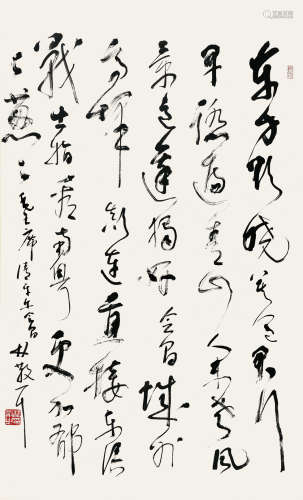 东方欲晓莫道君行
早踏遍青山人未老风
景这边独好会昌城外
高峰颠连直接东溟
战士指看南粤更加郁
郁葱葱 毛主席清平乐会昌 林散耳